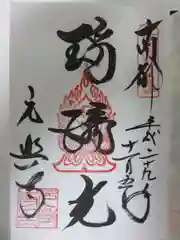 南都
平成二十九年
十一月五日
瑠璃光
元興寺